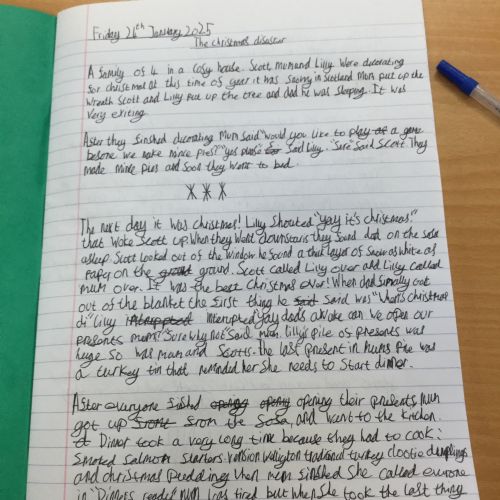 Friday 24th January 2025
The christmas disastar
A family of 4 in a cosy house. Scott, mum and Lilly were decorating
for christmas at this time of year it was snowing in scotland Mum put up the
Wreath Scott and Lilly put up the tree and dad he was sleeping. It was
very exiting.
After they finshed decorating Mum said "would you like to play a game
before we make mince pies?" "yes please" said Lilly. "Sure" said Scott They
made mince pies and soon they went to bed.
The next day it was christmas! Lilly shouted "yay it's christmas!"
that woke Scott up. When they went downstairs they found dad on the sofa
asleep Scott looked out of the window he found a thick layer of snow as white as
paper on the ground. Scott called Lilly over and Lilly called
mum over. It was the best christmas ever! When dad finally got
out of the blanket the first thing he said was "Whens christmas
di" Lilly interupted "yay dads awake can we open our
presants mum?" "Sure why not" said mum. Lilly's pile of presants was
huge so was mum and Scotts. the last present in mums pile was
a turkey tin that reminded her she needs to start dinner.
After everyone finshed opening their presents Mum
got up from the sofa, and went to the kitchen.
Dinner took a very long time because they had to cook:
smoked salmon starters venison wellington traditional turkey clootie dumplings
and christmas pudding when mum finshed She called everyone
in "Dinners ready" Mum was tired but when she took the last thing